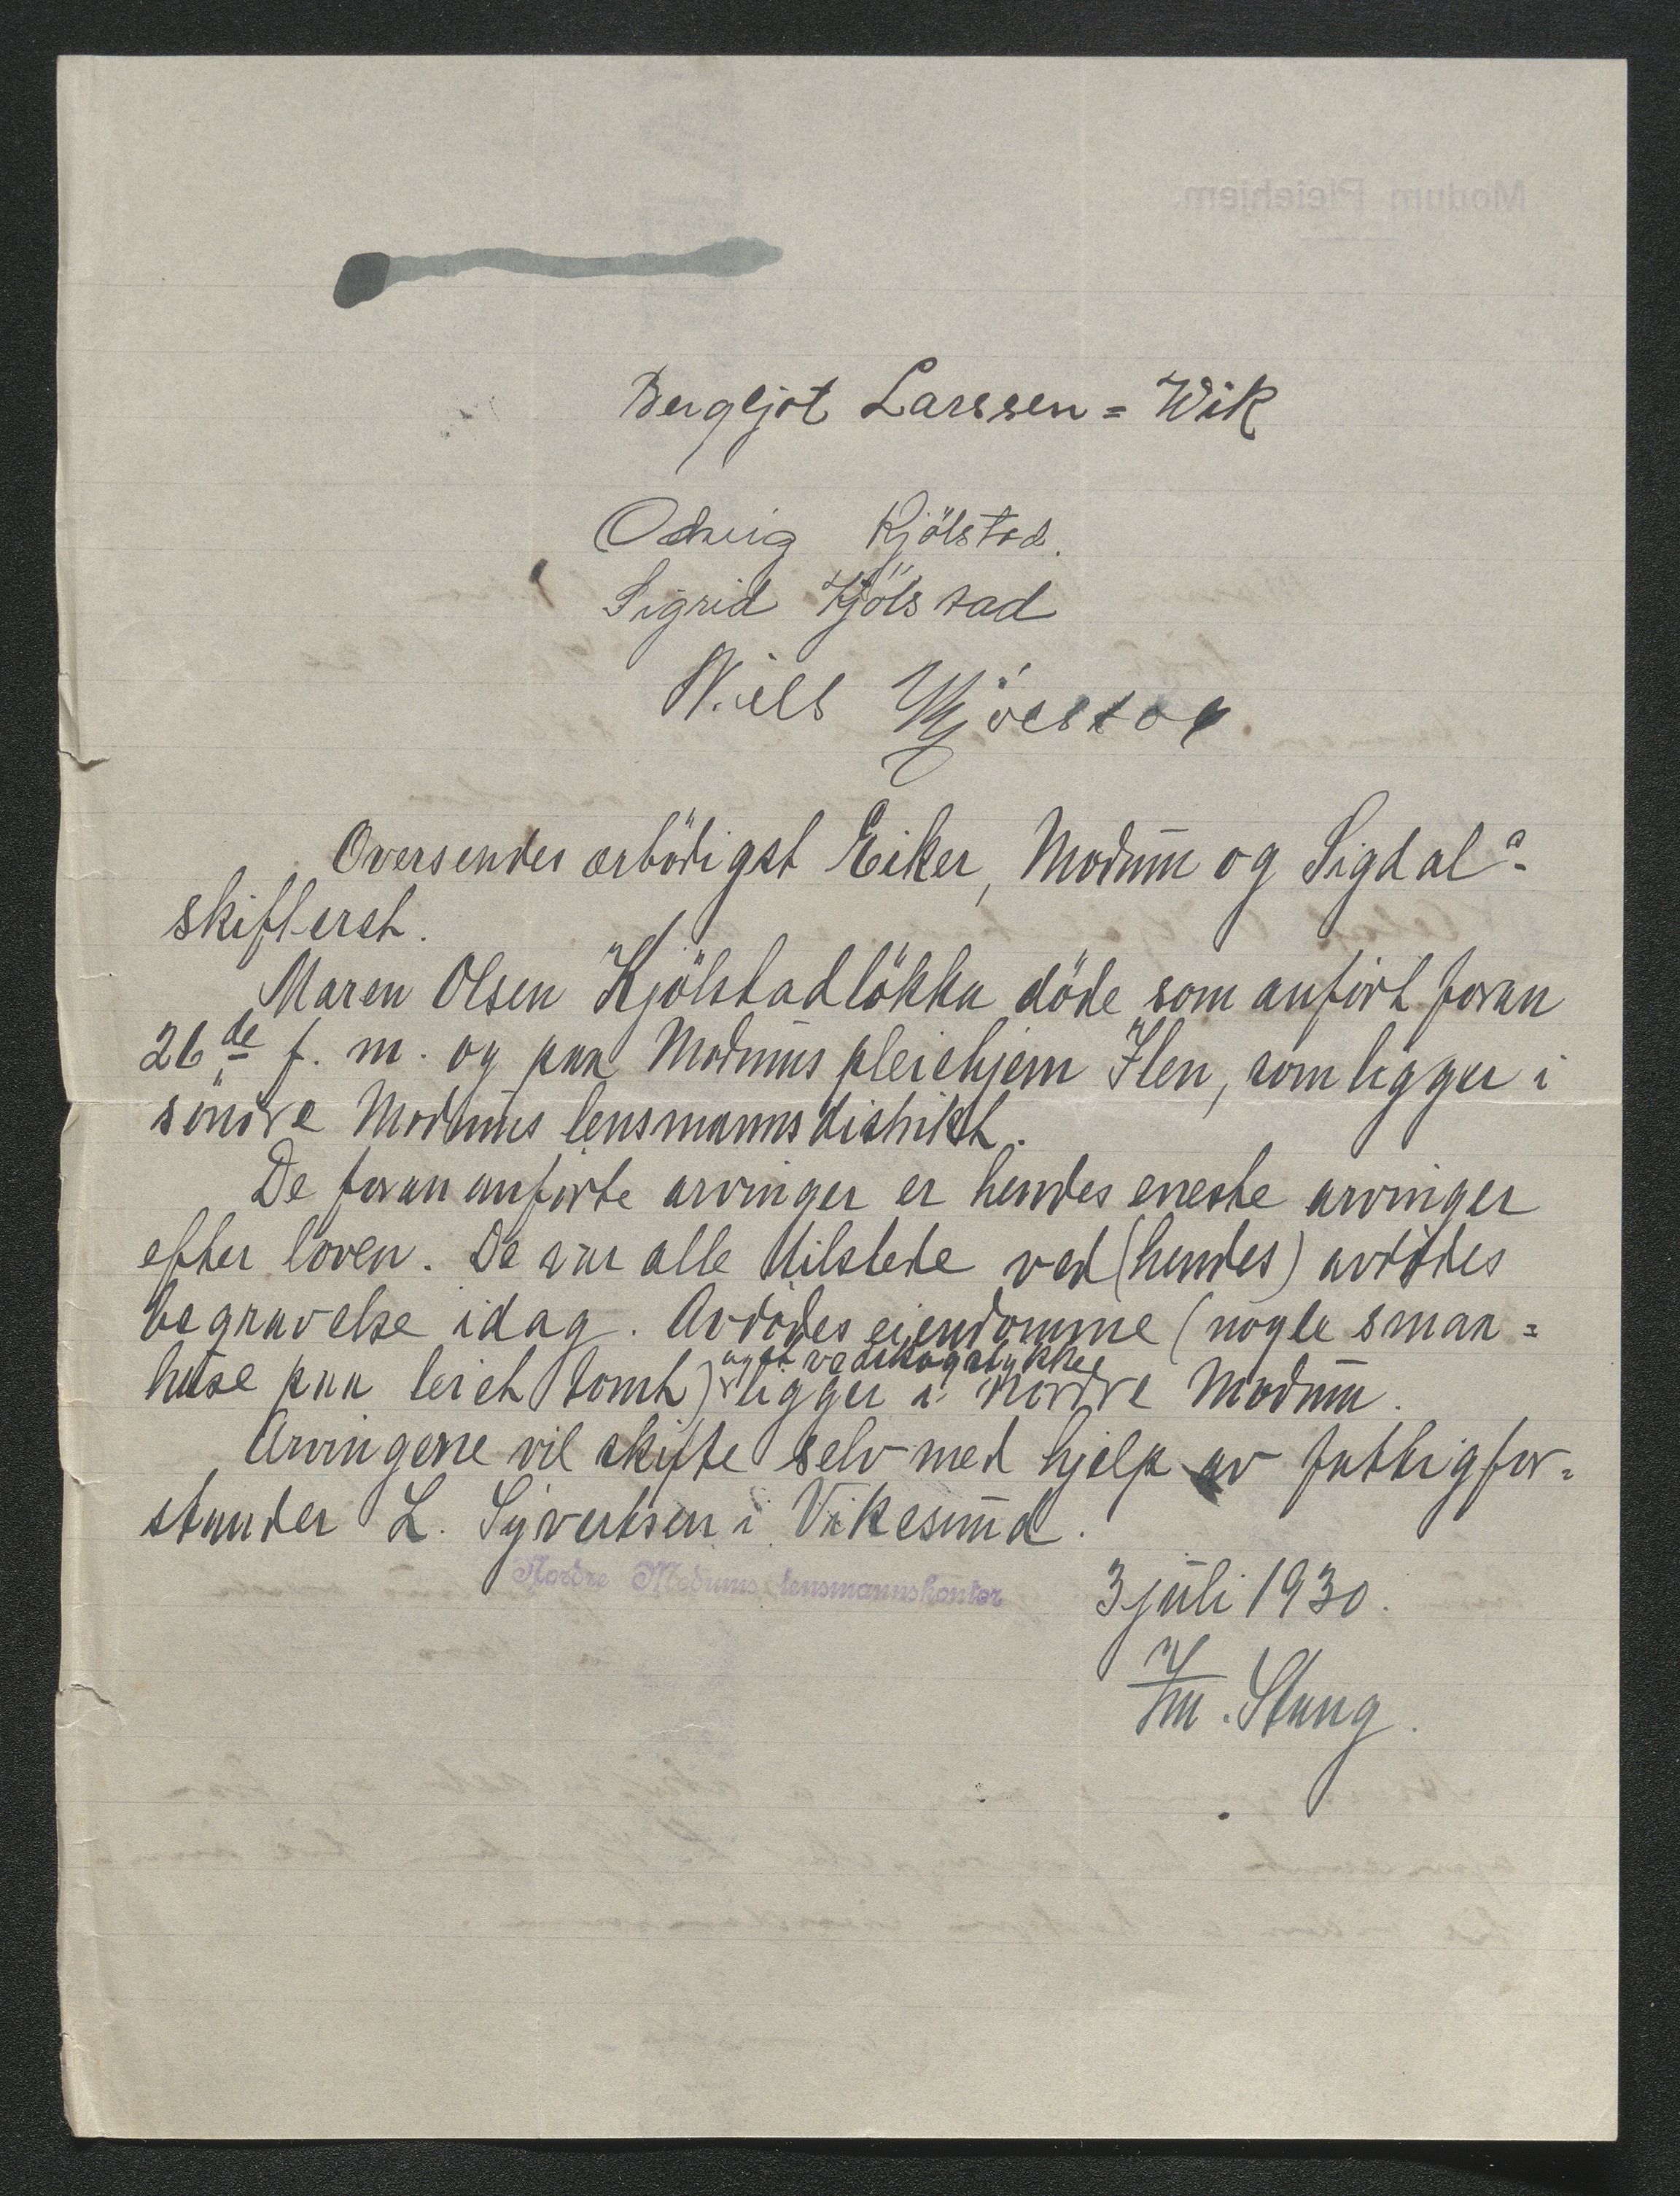 Modum Pleiehjem.
Bergljot Larssen = Wik
Odvig Kjölstad.
Sigrid Kjölstad
Niels Kjölstad
Oversendes ærbödigst Eiker, Modum og Sigdal
skifterett.
Maren Olsen Kjölstadlökka döde som anfört foran
26de f. m. og paa Modums pleiehjem Ilen, som ligger i
söndre Modums lensmannsdistrikt.
De foran anförte arvinger er hendes eneste arvinger
efter loven. De var alle tilstede ved (hendes) avdödes
begravelse idag. Avdödes eiendomme (nogle smaa=
huse paa leiet tomt) og et vedskogstykke ligger i nordre Modum.
Arvingene vil skifte selv med hjelp av fattigfor=
stander L. Syvertsen i Vikesund.
Nordre Modums lensmannskontor 3 juli 1930.
M. Stang.